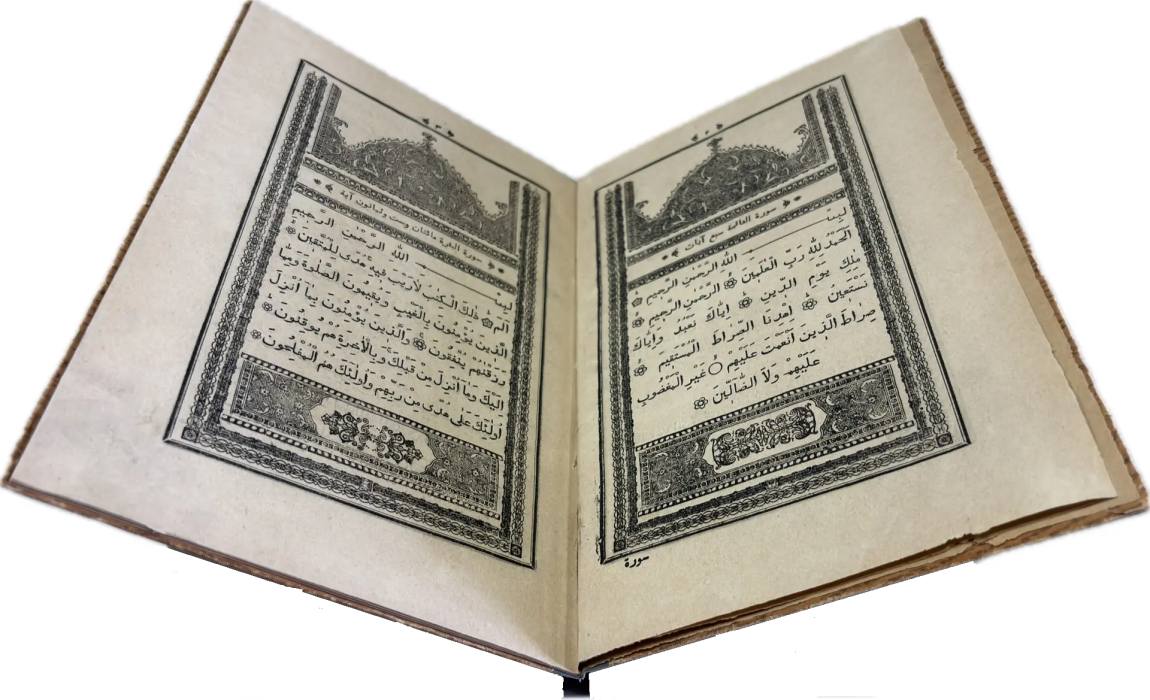 ٢
سورة الفاتحة سبع آيات
بسم الله الرَّحْمٰنِ الرَّحِيمِ
اَلْحَمْدُ لِلّٰهِ رَبِّ الْعٰلَمِينَ الرَّحْمٰنِ الرَّحِيمِ
مٰلِكِ يَوْمِ الدِّينِ اِيَّاكَ نَعْبُدُ وَاِيَّاكَ
نَسْتَعِينُ اِهْدِنَا الصِّرَاطَ الْمُسْتَقِيمَ
صِرَاطَ الَّذِينَ اَنْعَمْتَ عَلَيْهِمْ غَيْرِ الْمَغْضُوبِ
عَلَيْهِمْ وَلَا الضَّالِّينَ
سورة
٣
سورة البقرة مائتان وست وثمانون آية
بسم الله الرَّحْمٰنِ الرَّحِيمِ
الم ذٰلِكَ الْكِتٰبُ لَارَيْبَ فِيهِ هُدًى لِلْمُتَّقِينَ
الَّذِينَ يُؤْمِنُونَ بِالْغَيْبِ وَيُقِيمُونَ الصَّلٰوةَ وَمِمَّا
رَزَقْنٰهُمْ يُنْفِقُونَ وَالَّذِينَ يُؤْمِنُونَ بِمَا اُنْزِلَ
اِلَيْكَ وَمَا اُنْزِلَ مِنْ قَبْلِكَ وَبِالْاٰخِرَةِ هُمْ يُوقِنُونَ
اُولٰئِكَ عَلٰى هُدًى مِنْ رَبِّهِمْ وَاُولٰئِكَ هُمُ الْمُفْلِحُونَ